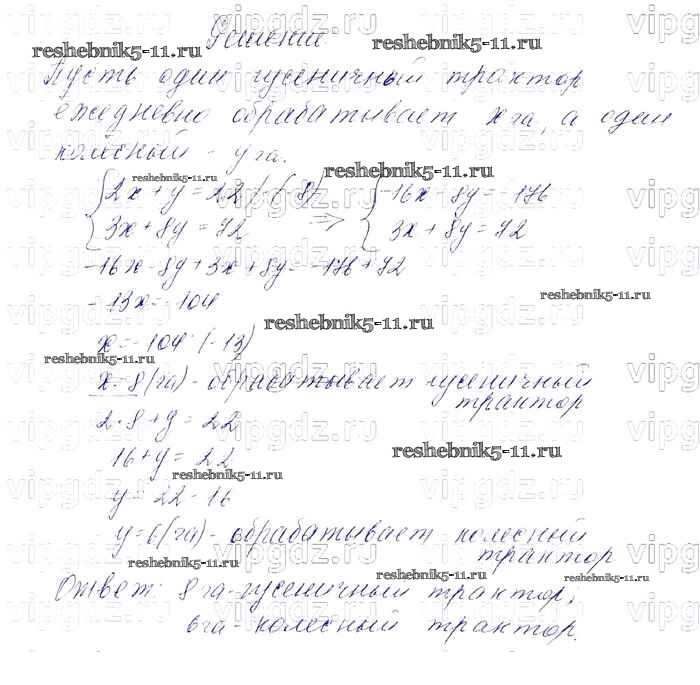 Решение.
Пусть один гусеничный трактор
ежедневно обрабатывает x га, а один
колёсный - y га.
{2x + y = 22 |·(-8) => {-16x - 8y = -176
{3x + 8y = 72 {3x + 8y = 72
-16x - 8y + 3x + 8y = -176 + 72
-13x = -104
x = -104 : (-13)
x = 8 (га) - обрабатывает гусеничный
трактор
2·8 + y = 22
16 + y = 22
y = 22 - 16
y = 6 (га) - обрабатывает колесный
трактор
Ответ: 8 га - гусеничный трактор,
6 га - колесный трактор.
reshebnik5-11.ru
reshebnik5-11.ru
reshebnik5-11.ru
reshebnik5-11.ru
reshebnik5-11.ru
reshebnik5-11.ru
reshebnik5-11.ru
reshebnik5-11.ru
reshebnik5-11.ru
reshebnik5-11.ru
reshebnik5-11.ru
reshebnik5-11.ru
vipgdz.ru